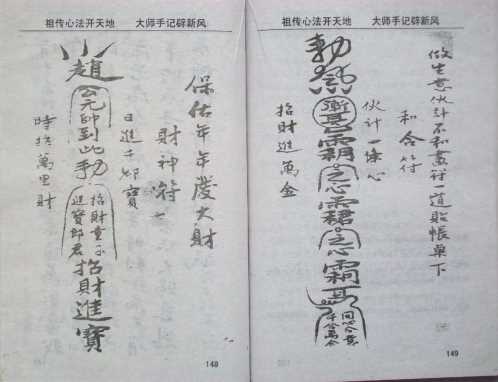 祖传心法开天地 大师手记辟新风
保佑年年發大財
財神符七
日進千鄉寶
趙公元帥到此
招財童子
進寶郎君
招財進寶
時招萬里財
148
祖传心法开天地 大师手记辟新风
做生意伙计不和畫符一道貼帳桌下
和合符
伙计一條心
勅
同心合意
千合萬合
招財進萬金
149